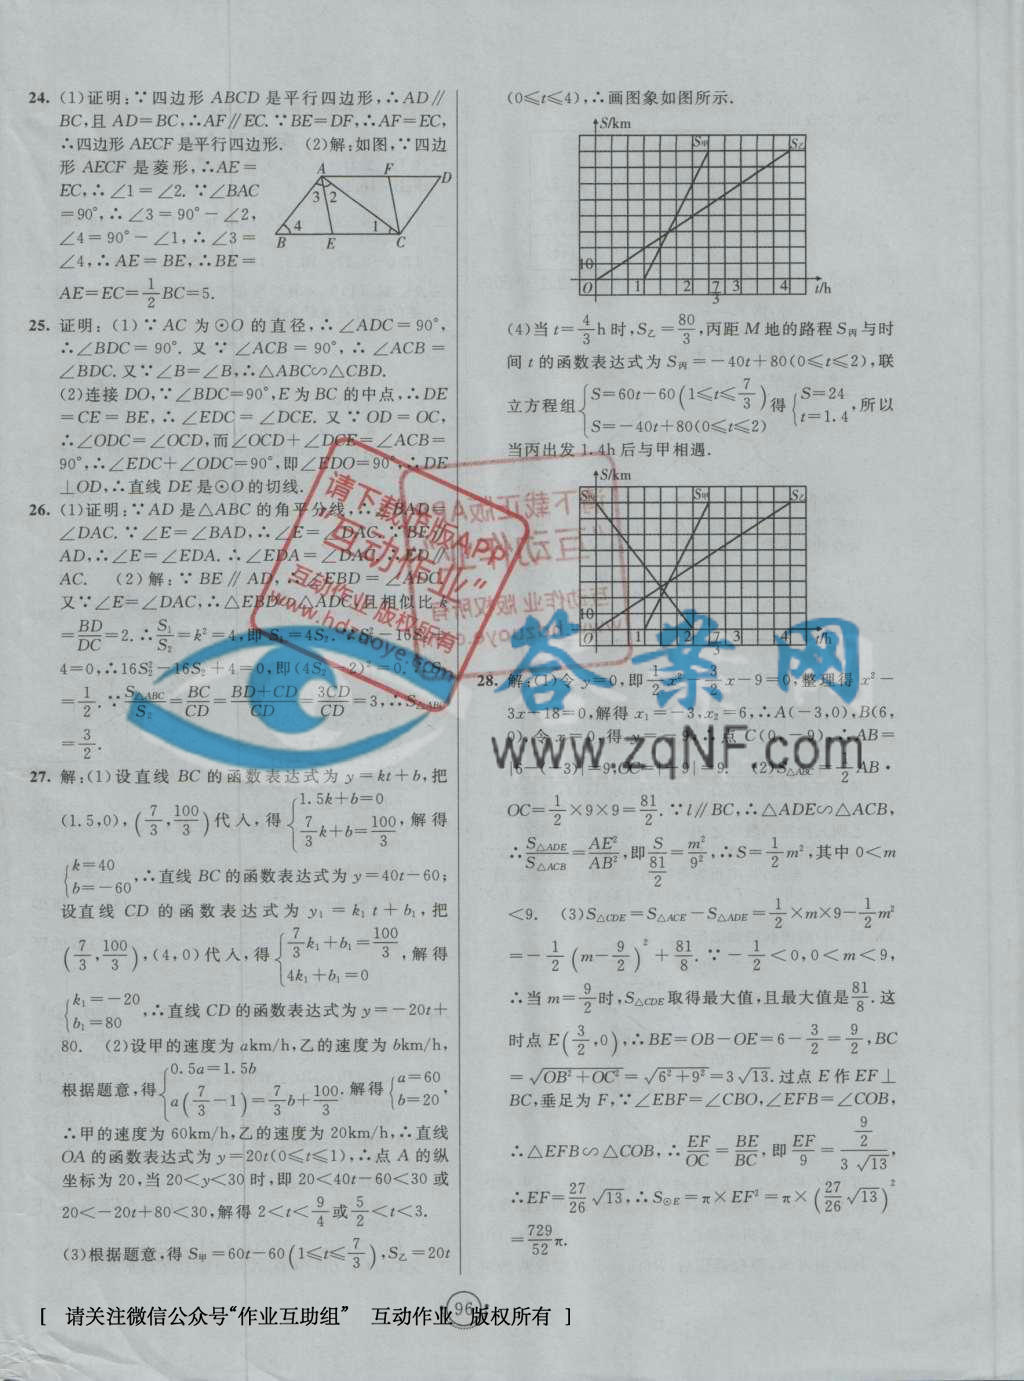 24. (1)证明:∵四边形 ABCD 是平行四边形,∴AD∥
BC,且 AD=BC,∴AF∥EC.∵BE=DF,∴AF=EC,
∴四边形 AECF 是平行四边形. (2)解:如图,∵四边
形 AECF 是菱形,∴AE=
EC,∴∠1=∠2.∵∠BAC
=90°,∴∠3=90°-∠2,
∠4=90°-∠1,∴∠3=
∠4,∴AE=BE,∴BE=
AE=EC=1/2BC=5.
A F D
3 2
4 1
B E C
25. 证明:(1)∵AC 为⊙O 的直径,∴∠ADC=90°,
∴∠BDC=90°.又∵∠ACB=90°,∴∠ACB=
∠BDC.又∵∠B=∠B,∴△ABC∽△CBD.
(2)连接 DO,∵∠BDC=90°,E 为 BC 的中点,∴DE
=CE=BE,∴∠EDC=∠DCE.又∵OD=OC,
∴∠ODC=∠OCD,而∠OCD+∠DCE=∠ACB=
90°,∴∠EDC+∠ODC=90°,即∠EDO=90°,∴DE
⊥OD,∴直线 DE 是⊙O 的切线.
26. (1)证明:∵AD 是△ABC 的角平分线,∴∠BAD=
∠DAC.∵∠E=∠BAD,∴∠E=∠DAC.∵BE∥
AD,∴∠E=∠EDA.∴∠EDA=∠DAC,∴ED∥
AC. (2)解:∵BE∥AD,∴∠EBD=∠ADC,
又∵∠E=∠DAC,∴△EBD∽△ADC,且相似比 k
=BD/DC=2.∴S₁/S₂=k²=4,即 S₁=4S₂.
4=0,∴16S₂²-16S₂+4=0,即(4S₂-2)²=0.∴S₂
=1/2.∵S△ABC/S₂=BC/CD=BD+CD/CD=3CD/CD=3,∴S△ABC
=3/2.
27. 解:(1)设直线 BC 的函数表达式为 y=kt+b,把
(1.5,0),(7/3,100/3)代入,得{1.5k+b=0 7/3k+b=100/3,解得
{k=40 b=-60,∴直线 BC 的函数表达式为 y=40t-60;
设直线 CD 的函数表达式为 y₁=k₁t+b₁,把
(7/3,100/3),(4,0)代入,得{7/3k₁+b₁=100/3 4k₁+b₁=0,解得
{k₁=-20 b₁=80,∴直线 CD 的函数表达式为 y=-20t+
80. (2)设甲的速度为 akm/h,乙的速度为 bkm/h,
根据题意,得{0.5a=1.5b a(7/3-1)=7/3b+100/3.解得{a=60 b=20,
∴甲的速度为 60km/h,乙的速度为 20km/h,∴直线
OA 的函数表达式为 y=20t(0≤t≤1),∴点 A 的纵
坐标为 20,当 20<y<30 时,即 20<40t-60<30 或
20<-20t+80<30,解得 2<t<9/4或5/2<t<3.
(3)根据题意,得 S甲=60t-60(1≤t≤7/3),S乙=20t
(0≤t≤4),∴画图象如图所示.
S/km
S甲 S乙
10
O 1 2 7/3 3 4 t/h
(4)当 t=4/3h 时,S乙=80/3,丙距 M 地的路程 S丙与时
间 t 的函数表达式为 S丙=-40t+80(0≤t≤2),联
立方程组{S=60t-60(1≤t≤7/3) S=-40t+80(0≤t≤2)得{S=24 t=1.4,所以
当丙出发 1.4h 后与甲相遇.
S/km
S丙 S甲 S乙
10
O 1 2 7/3 3 4 t/h
28. 解:(1)令 y=0,即1/2x²-3/2x-9=0,整理得 x²-
3x-18=0,解得 x₁=-3,x₂=6,∴A(-3,0),B(6,
0).令 x=0,得 y=-9,∴点 C(0,-9).∴AB=
|6-(-3)|=9,OC=|-9|=9. (2)S△ABC=1/2AB·
OC=1/2×9×9=81/2.∵l∥BC,∴△ADE∽△ACB,
∴S△ADE/S△ACB=AE²/AB²,即S/(81/2)=m²/9²,∴S=1/2m²,其中 0<m
<9. (3)S△CDE=S△ACE-S△ADE=1/2×m×9-1/2m²
=-1/2(m-9/2)²+81/8.∵-1/2<0,0<m<9,
∴当 m=9/2时,S△CDE取得最大值,且最大值是81/8.这
时点 E(3/2,0),∴BE=OB-OE=6-3/2=9/2,BC
=√OB²+OC²=√6²+9²=3√13.过点 E 作 EF⊥
BC,垂足为 F,∵∠EBF=∠CBO,∠EFB=∠COB,
∴△EFB∽△COB,∴EF/OC=BE/BC,即EF/9=(9/2)/3√13
∴EF=27/26√13,∴S⊙E=π×EF²=π×(27/26√13)²
=729/52π.
请下载正版APP
“互动作业”
互动作业 版权所有
www.hdzuoye.com
答案网
www.zqNF.com
96
[ 请关注微信公众号“作业互助组” 互动作业 版权所有 ]